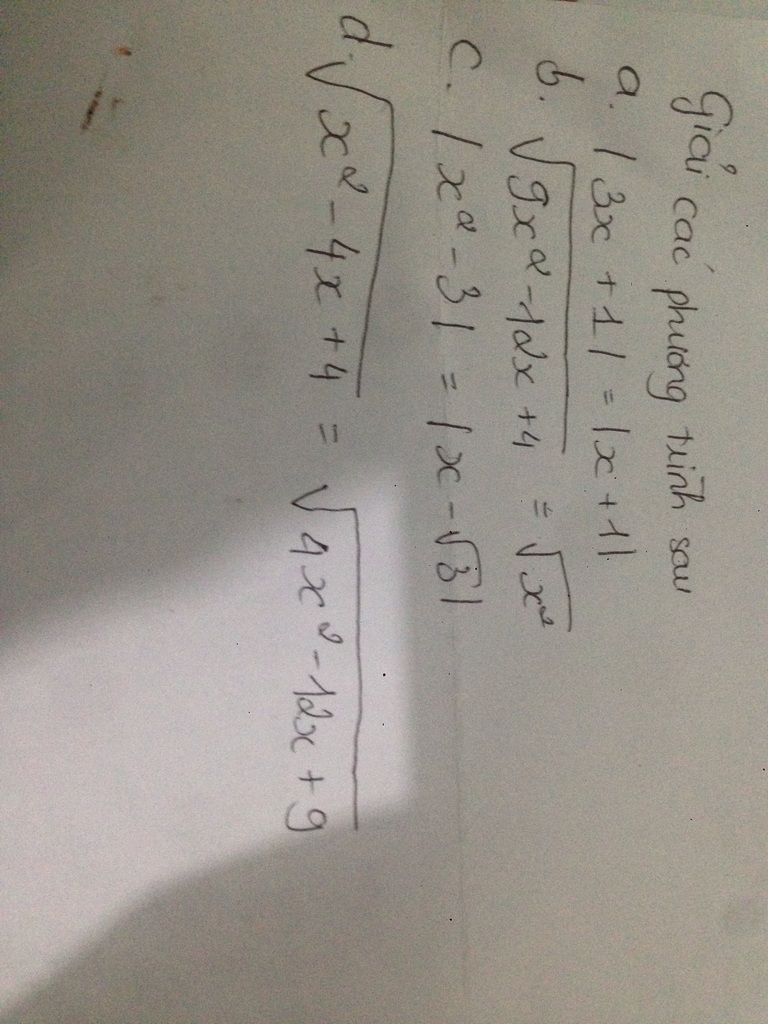 Giải các phương trình sau
a. |3x + 1| = |x + 1|
b. √(9x² - 12x + 4) = √x²
c. |x² - 3| = |x - √3|
d. √(x² - 4x + 4) = √(4x² - 12x + 9)